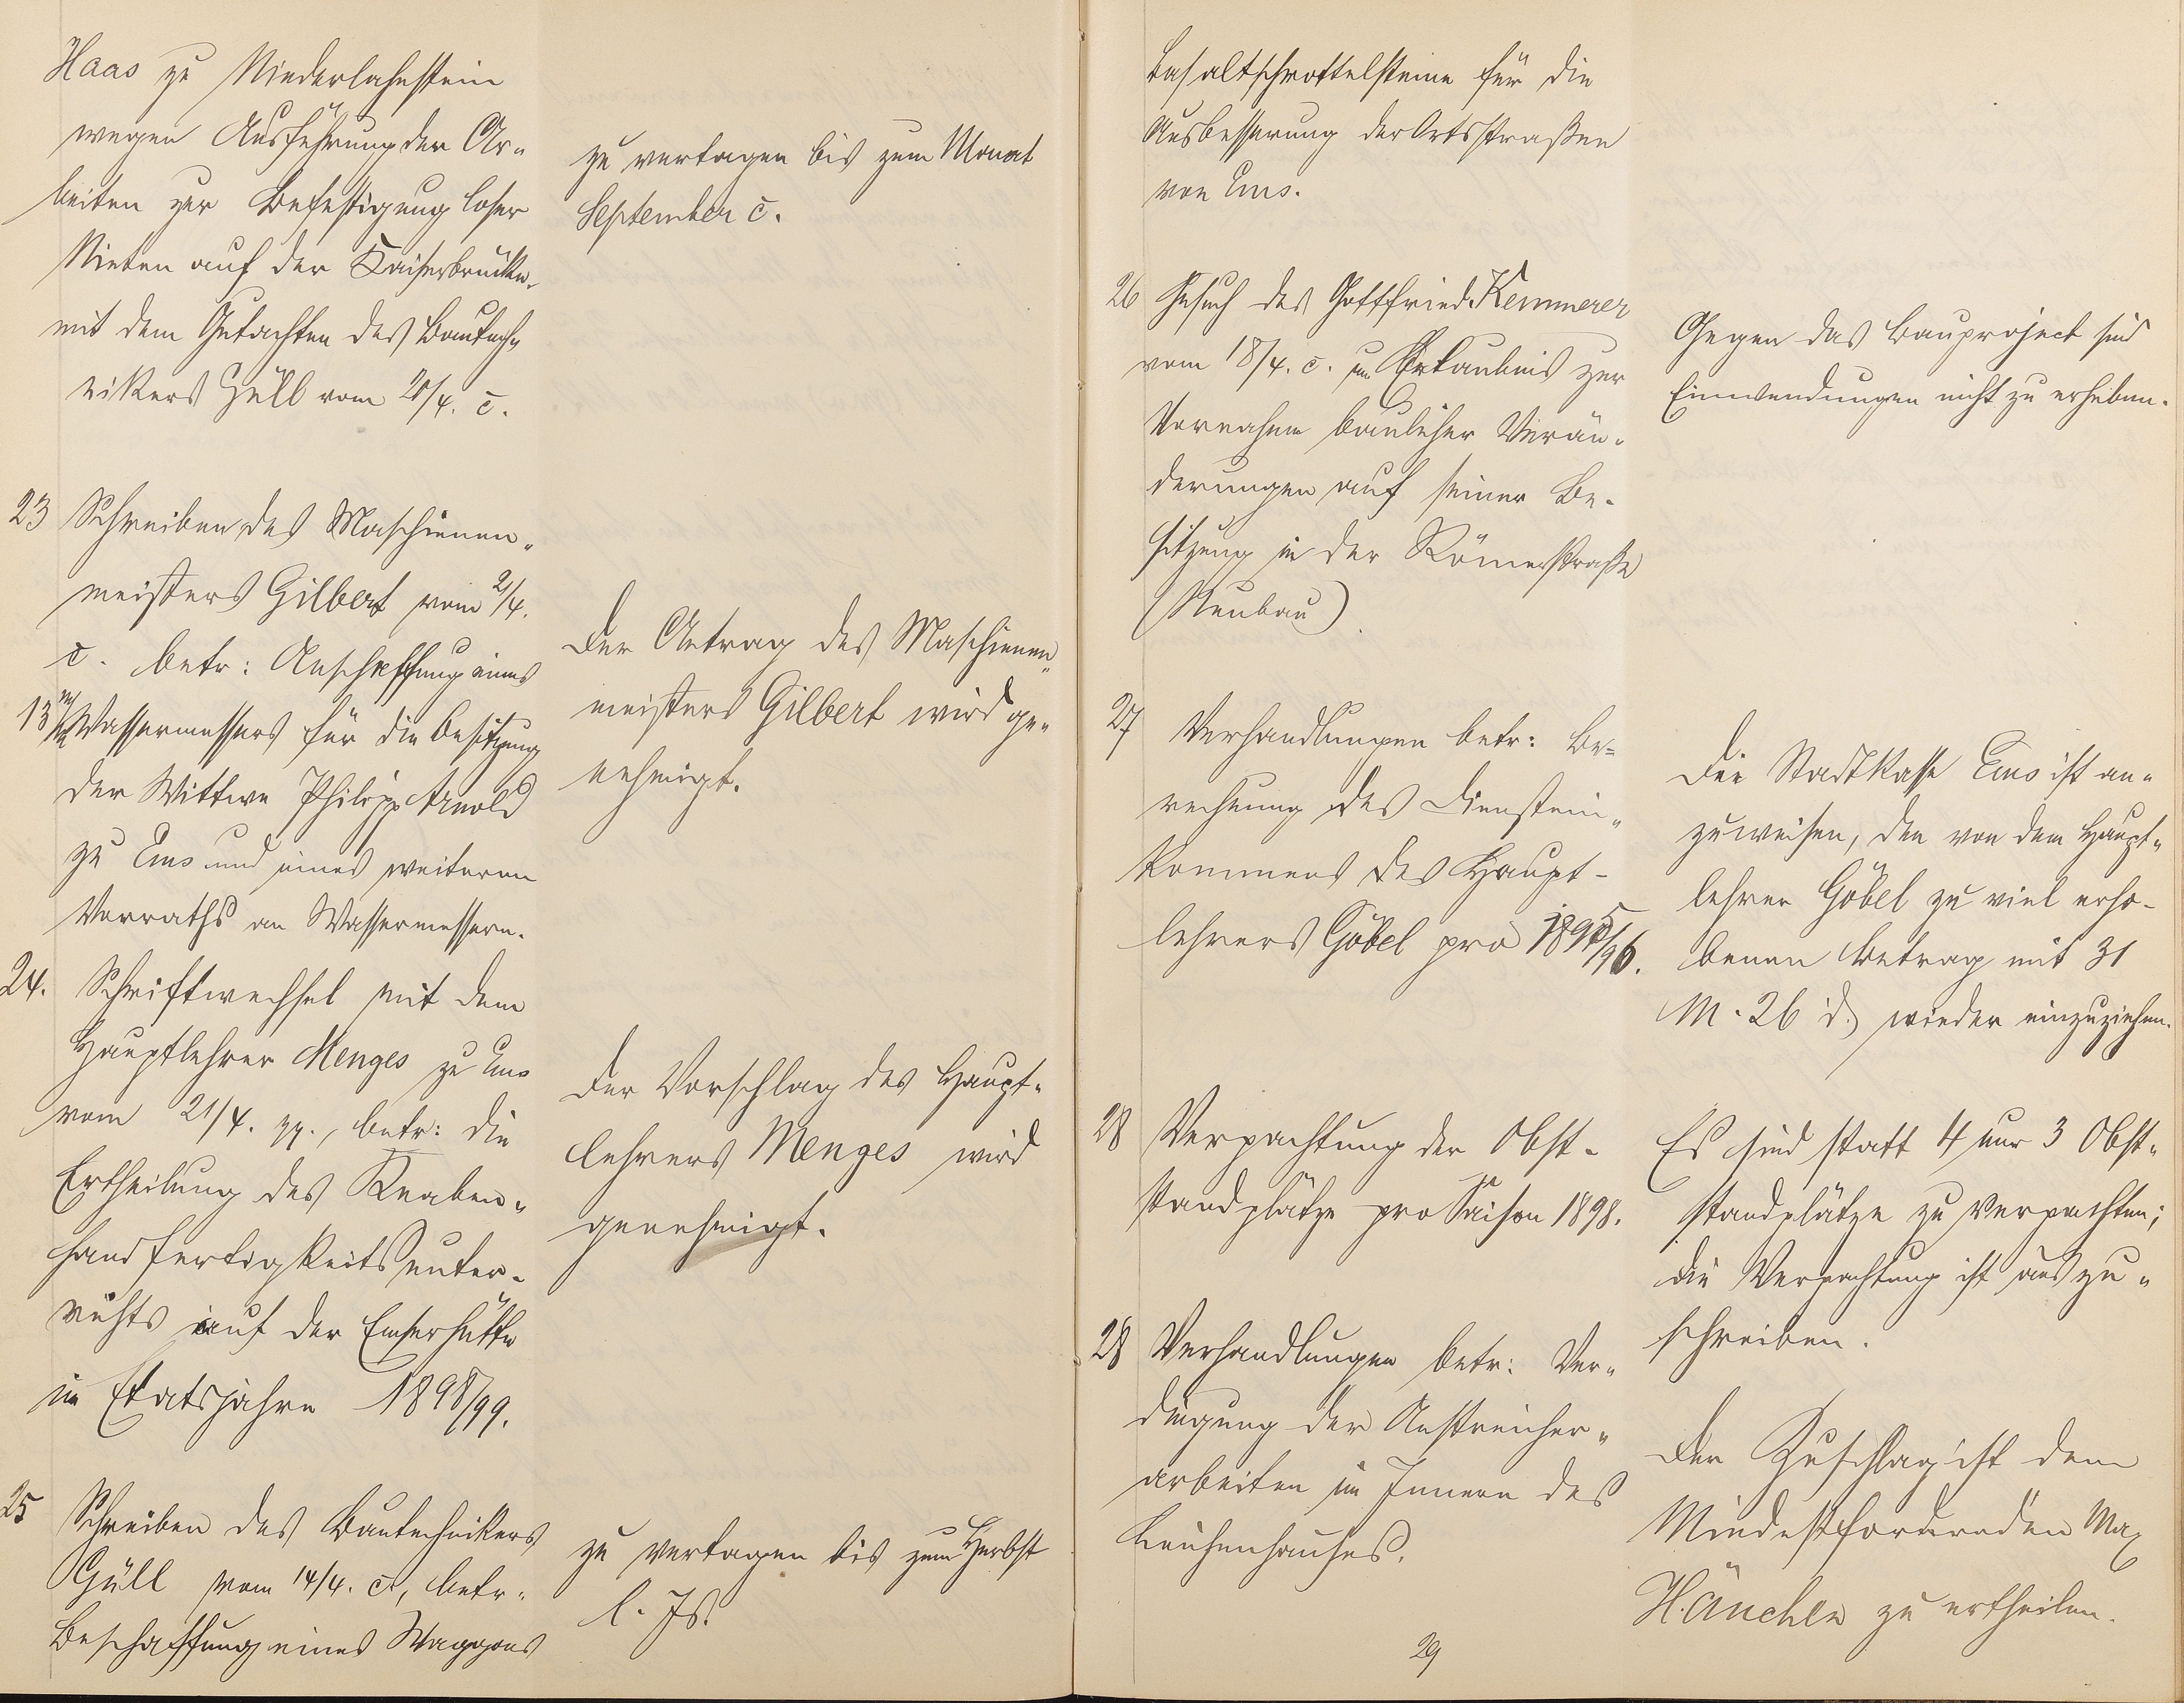 Haas zu Niederlahnstein
wegen Ausführung der Ar-
beiten zur Befestigung loser
Nieten auf der Kaiserbrücke,
mit dem Gutachten des Bautech-
nikers Güll vom 20/4. c.
zu vertagen bis zum Monat
September c.
23 Schreiben des Maschienen-
meisters Gilbert vom 2/4.
c. betr: Anschaffung eines
13 m/m Wassermessers für die Besitzung
der Wittwe Philipp Arnold
zu Ems und eines weiteren
Vorraths an Wassermessern.
Der Antrag des Maschienen-
meisters Gilbert wird ge-
nehmigt.
24. Schriftwechsel mit dem
Hauptlehrer Menges zu Ems
vom 21/4. pp., betr: die
Ertheilung des Knaben-
handfertigkeitsunter-
richts auf der Emserhütte
im Etatsjahre 1898/99.
Der Vorschlag des Haupt-
lehrers Menges wird
genehmigt.
25 Schreiben des Bautechnikers
Güll vom 14/4. c., betr.
Beschaffung eines Waggons
zu vertagen bis zum Herbst
l. Js.
Basaltschrottelsteine für die
Ausbesserung der Ortsstraßen
von Ems.
26 Gesuch des Gottfried Kemmerer
vom 18/4. c. um Erlaubnis zur
Vornahme baulicher Verän-
derungen auf seiner Be-
sitzung in der Römerstraße
(Neubau).
Gegen das Bauproject sind
Einwendungen nicht zu erheben.
27 Verhandlungen betr: Be-
rechnung des Dienstein-
kommens des Haupt-
lehrers Göbel pro 1895/96.
Die Stadtkasse Ems ist an-
zuweisen, den von dem Haupt-
lehrer Göbel zu viel erho-
benen Betrag mit 31
M. 26 d. wieder einzuziehen.
28 Verpachtung der Obst-
standplätze pro Saison 1898.
Es sind statt 4 nur 3 Obst-
standplätze zu verpachten;
die Verpachtung ist auszu-
schreiben.
28 Verhandlungen betr: Ver-
dingung der Anstreicher-
arbeiten im Innern des
Leichenhauses.
Der Zuschlag ist dem
Mindestfordernden Max
Hänchen zu ertheilen.
29